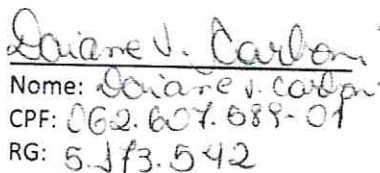 Daiane V. Carboni
Nome: Daiane V. Carboni
CPF: 062.607.589-01
RG: 5.173.542